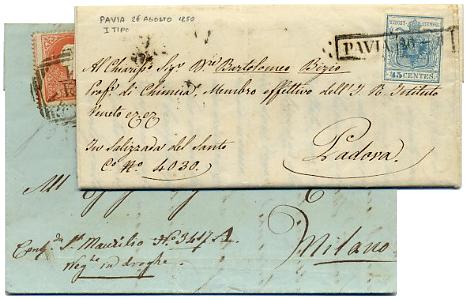 PAVIA 26 AGOSTO 1850
I TIPO
PAVIA
45 CENTES
Al Chiariss. Sigr. Bartolomeo Bizio
Prof. di Chimica, Membro effettivo dell'I. R. Istituto
Veneto
In Salizzada del Santo
Co. No. 4030.
Padova.
All
Contr. Sn. Maurilio No. 3417 A
Negte. in droghe
Milano